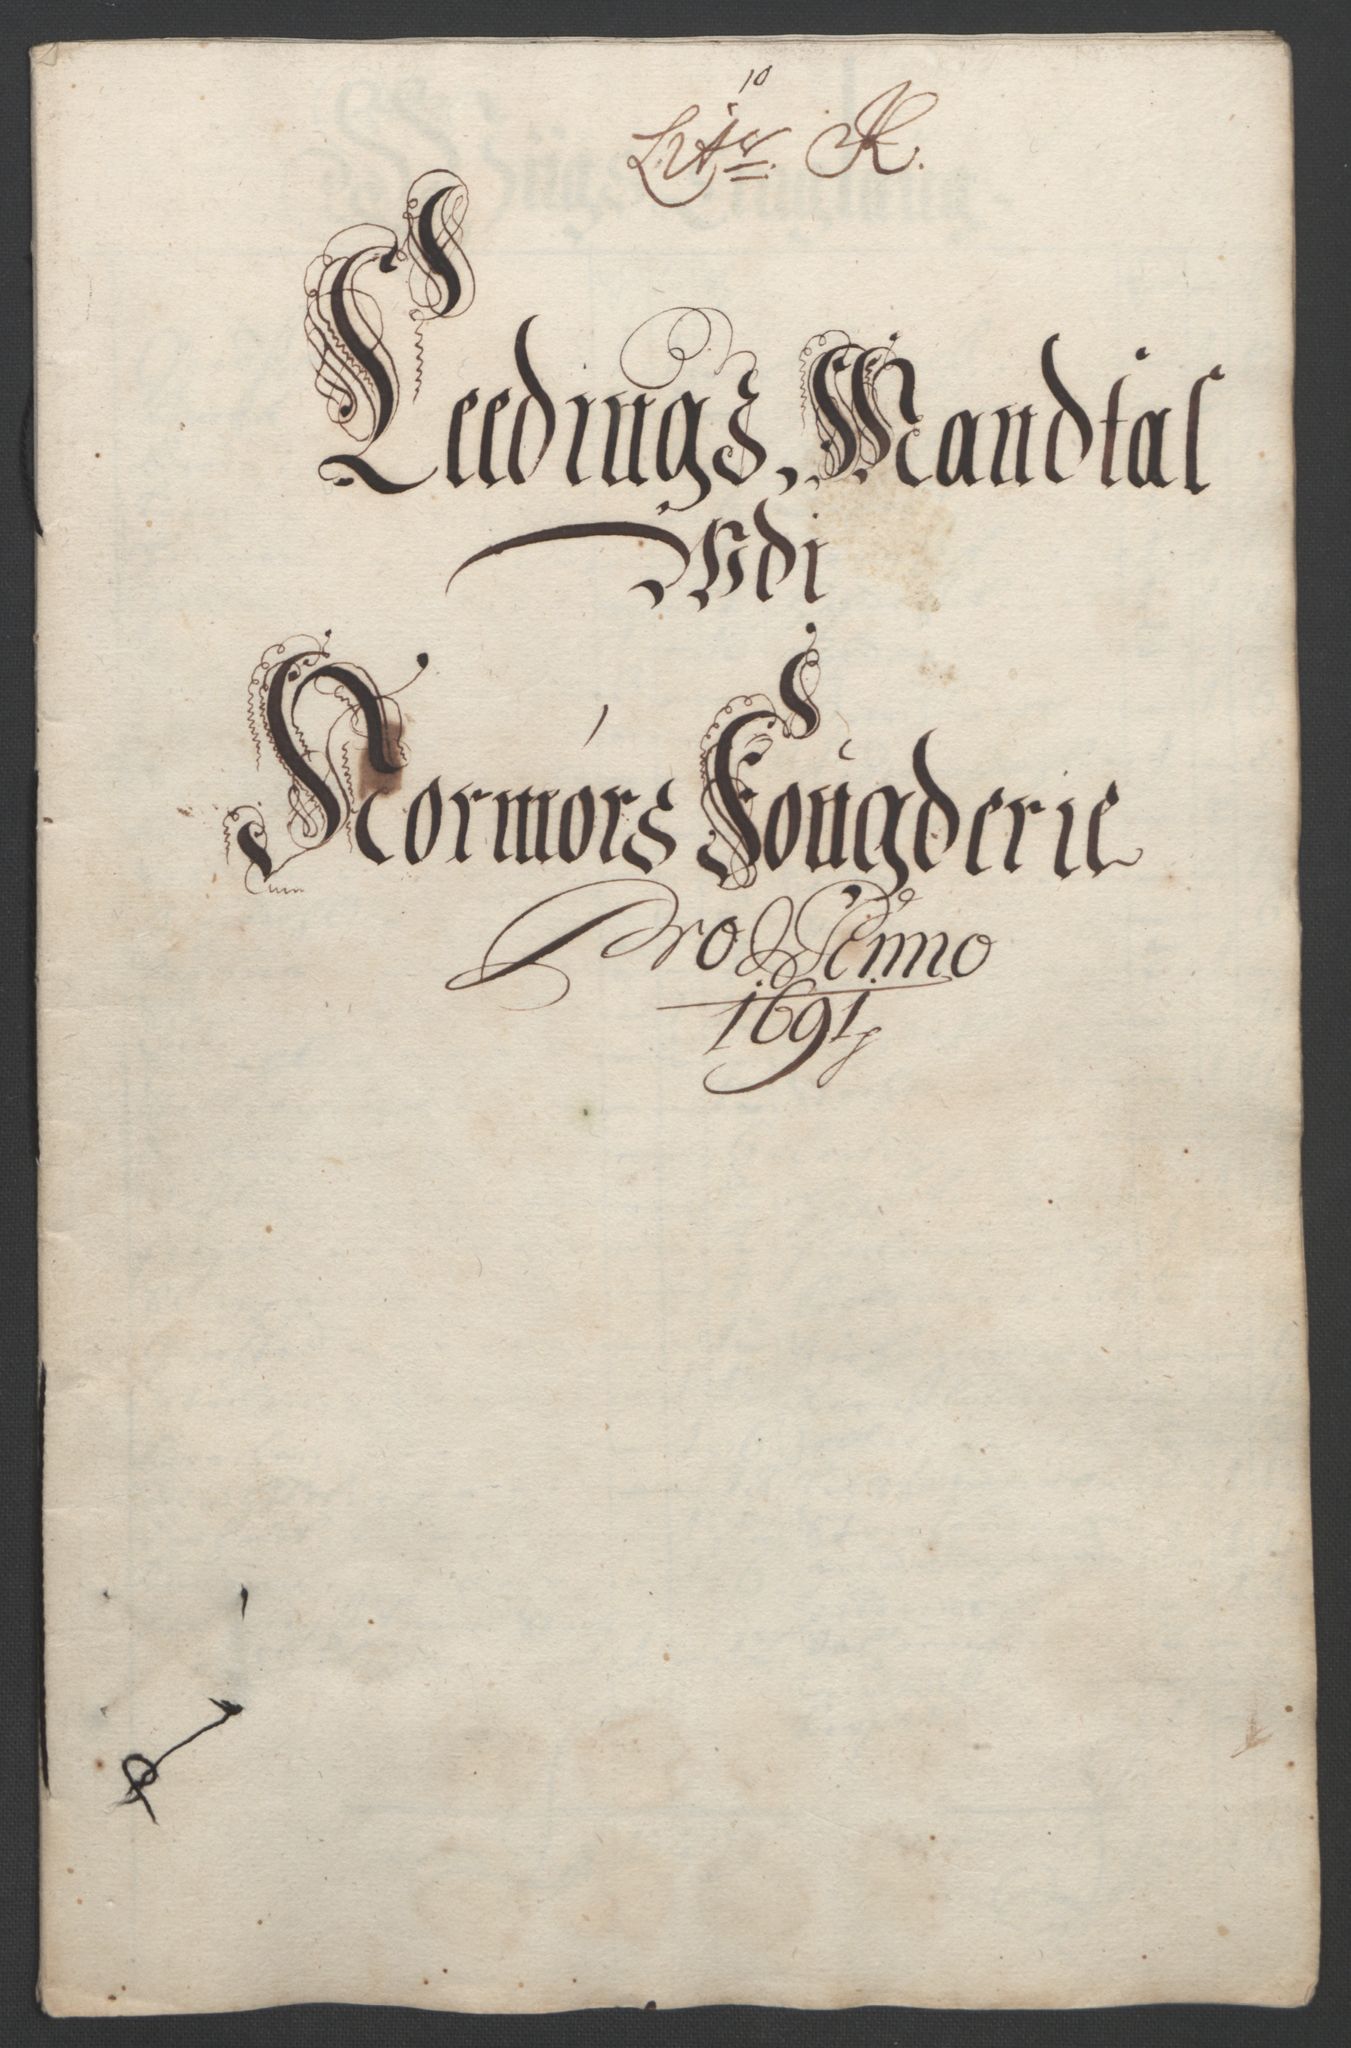 10
Litr. K.
Leedings, Mandtal
Vdi
Normørs Fougderie
Pro Anno
1691